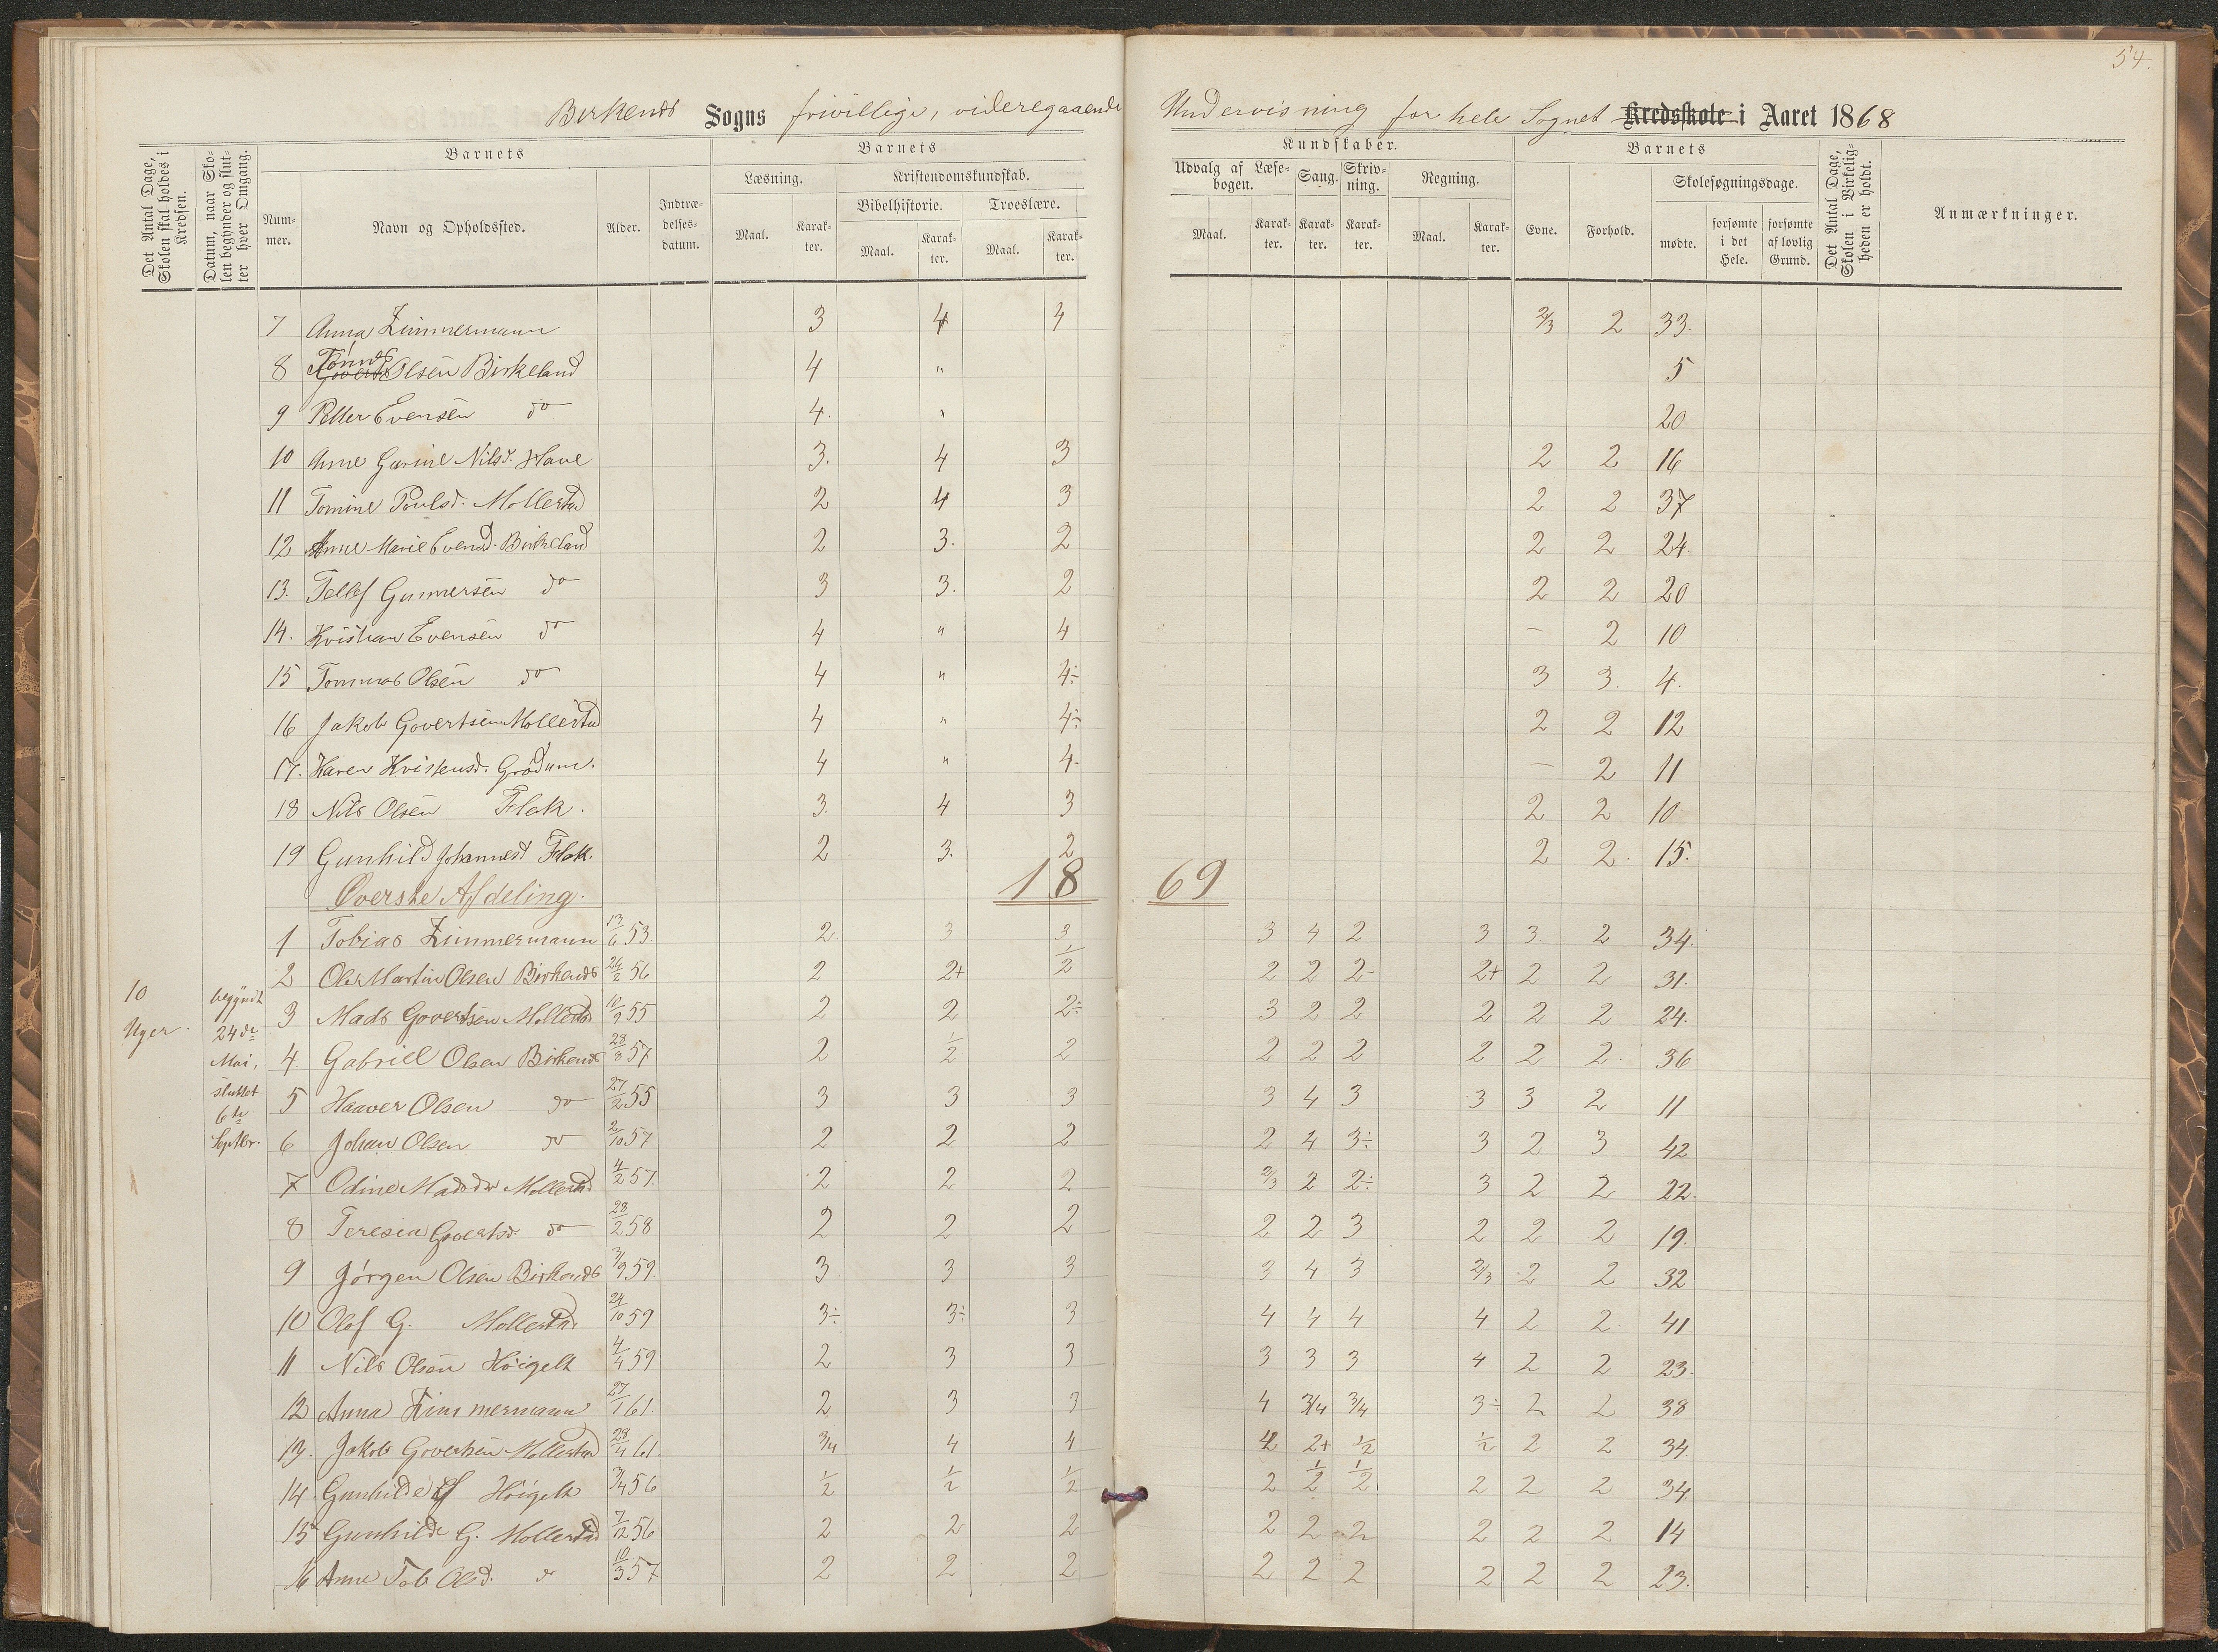 54.
Birkenæs Sogns frivillige, videregaaende Undervisning for hele Sognet Kredsskole i Aaret 1868
Det Antal Dage, Skolen skal holdes i Kredsen.
Datum, naar Skolen begynder og slutter hver Omgang.
Barnets
Nummer.
Navn og Opholdssted.
Alder.
Indtrædelsesdatum.
Barnets
Læsning.
Maal.
Karakter.
Kristendomskundskab.
Bibelhistorie.
Maal.
Karakter.
Troeslære.
Maal.
Karakter.
Kundskaber.
Udvalg af Læsebogen.
Maal.
Karakter.
Sang.
Karakter.
Skrivning.
Karakter.
Regning.
Maal.
Karakter.
Barnets
Evne.
Forhold.
Skolesøgningsdage.
mødte.
forsømte i det Hele.
forsømte af lovlig Grund.
Det Antal Dage, Skolen i Virkeligheden er holdt.
Anmærkninger.
7 Anna Zimmermann 3 4 4 2/3 2 33.
8 Olsen Birkeland 4 " 5
9 Peller Evensen do 4. " 20
10 Anne Gurine Nilsd. Have 3. 4 3 2 2 16
11 Tomine Poulsd. Mollestad 2 4 3 2 2 37
12 Anne Marie Evensd. Birkeland 2 3. 2 2 2 24.
13. Tellef Gunnersen do 3 3. 2 2 2 20
14. Kristian Evensen do 4 " 4 – 2 10
15 Tommas Olsen do 4 " 4÷ 3 3. 4.
16 Jakob Govertsen Mollestad 4 " 4÷ 2 2 12
17. Karen Kristensd. Grødum. 4 " 4- – 2 11
18 Nils Olsen Flak. 3. 4 3 2 2 10
19 Gunhild Johannesd Flak. 2 3. 2 2 2. 15.
Øverste Afdeling. 18 69
1 Tobias Zimmermann 13/6 53 2 3 3 3 4 2 3 3. 2 34.
2 Ole Martin Olsen Birkenæs 24/2 56 2 2+ 1/2 2 2 2- 2+ 2 2 31.
10 Uger.
begyndt 24de Mai, sluttet 6te Septbr.
3 Mads Govertsen Mollestad 10/9 55 2 2 2÷ 3 2 2 2 2 2 24.
4. Gabriel Olsen Birkenæs 28/8 57 2 1/2 2 2 2 2 2 2 2. 36
5 Haaver Olsen do 27/2 55 3 3 3 3 4 3 3 3 2 11
6 Johan Olsen do 2/10 57 2 2 2 2 4 3÷ 3 2 3 42
7 Odine Madsdr Mollestad 4/2 57. 2 2 2 2/3 2 2÷ 3 2 2 22.
8 Teresia Govertsd. do 28/2 58 2 2 2 2 2 3 2 2 2 19.
9 Jørgen Olsen Birkenæs 3/9 59. 3 3 3 3 4 3 2/3 2 2 32
10 Olof G. Mollestad 24/10 59 3÷ 3÷ 3 4 4 4 4 2 2. 41
11 Nils Olsen Høigelt 4/4 59 2 3 3 3 3 3 4 2 2 23.
12 Anna Zimmermann 27/1 61. 2 3 3 4 3/4 3/4 3÷ 2 2 38
13. Jakob Govertsen Mollestad 28/4 61. 3/4 4 4 4 2+ 1/2 1/2 2 2 34.
14 Gunhilde Høigelt 3/4 56 1/2 1/2 1/2 2 1/2 1/2. 2 2 2 34.
15 Gunhilde G. Mollestad 7/12 56 2 2 2 2 2 2 2 2 2 14
16 Anne Tob Olsd. do 10/3 57 2 2 2 2 2 2 2 2 2 23.